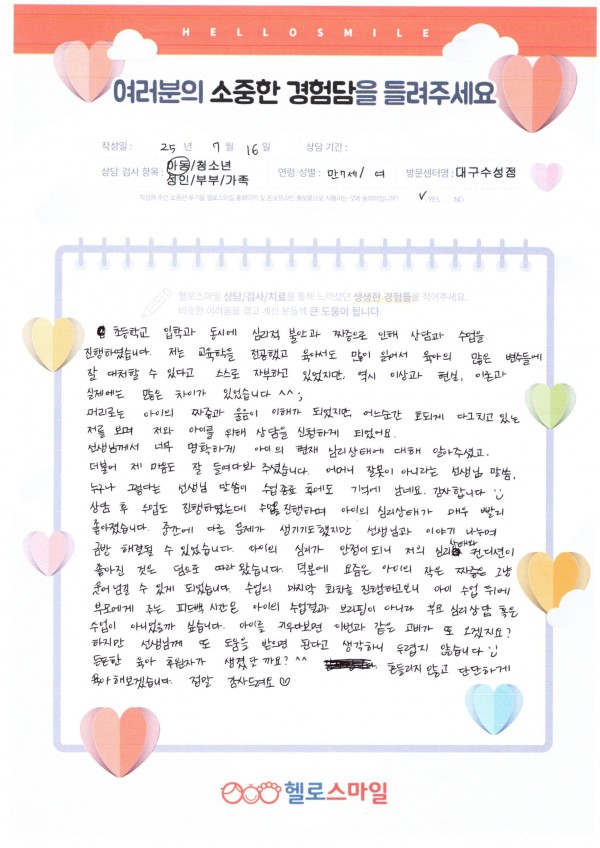 HELLOSMILE
여러분의 소중한 경험담을 들려주세요
작성일 : 25 년 7 월 16 일 상담 기간 :
상담 검사 항목 : 아동/청소년 성인/부부/가족 연령 성별 : 만7세/ 여 방문센터명 : 대구수성점
작성해 주신 소중한 후기를 헬로스마일 홈페이지 및 온오프라인 홍보용으로 사용하는 것에 동의하십니까? ✓ YES NO
헬로스마일 상담/검사/치료를 통해 느끼셨던 생생한 경험들을 적어주세요.
비슷한 어려움을 겪고 계신 분들께 큰 도움이 됩니다.
초등학교 입학과 동시에 심리적 불안과 짜증으로 인해 상담과 수업을
진행하였습니다. 저는 교육학을 전공했고 육아서도 많이 읽어서 육아의 많은 변수들에
잘 대처할 수 있다고 스스로 자부하고 있었지만, 역시 이상과 현실, 이론과
실제에는 많은 차이가 있었습니다 ^^;
머리로는 아이의 짜증과 울음이 이해가 되었지만, 어느순간 호되게 다그치고 있는
저를 보며 저와 아이를 위해 상담을 신청하게 되었어요.
선생님께서 너무 명확하게 아이의 현재 심리상태에 대해 알아주셨고.
더불어 제 마음도 잘 들여다봐 주셨습니다. 어머니 잘못이 아니라는 선생님 말씀,
누구나 그렇다는 선생님 말씀이 수업종료 후에도 기억에 남네요. 감사합니다 :)
상담 후 수업도 진행하였는데 수업을 진행하며 아이의 심리상태가 매우 빨리
좋아졌습니다. 중간에 다른 문제가 생기기도했지만 선생님과 이야기 나누며
금방 해결될 수 있었습니다. 아이의 심리가 안정이되니 저의 심리상태와 컨디션이
좋아진 것은 덤으로 따라왔습니다. 덕분에 요즘은 아이의 작은 짜증은 그냥
웃어넘길 수 있게 되었습니다. 수업의 마지막 회차를 진행하고보니 아이 수업 뒤에
부모에게 주는 피드백 시간은 아이의 수업결과 브리핑이 아니라 부모 심리상담 혹은
수업이 아니었을까 싶습니다. 아이를 키우다보면 이번과 같은 고비가 또 오겠지요?
하지만 선생님께 또 도움을 받으면 된다고 생각하니 두렵지 않습니다 :)
든든한 육아 후원자가 생겼달까요? ^^ 흔들리지 않고 단단하게
육아해보겠습니다. 정말 감사드려요 ♡
헬로스마일